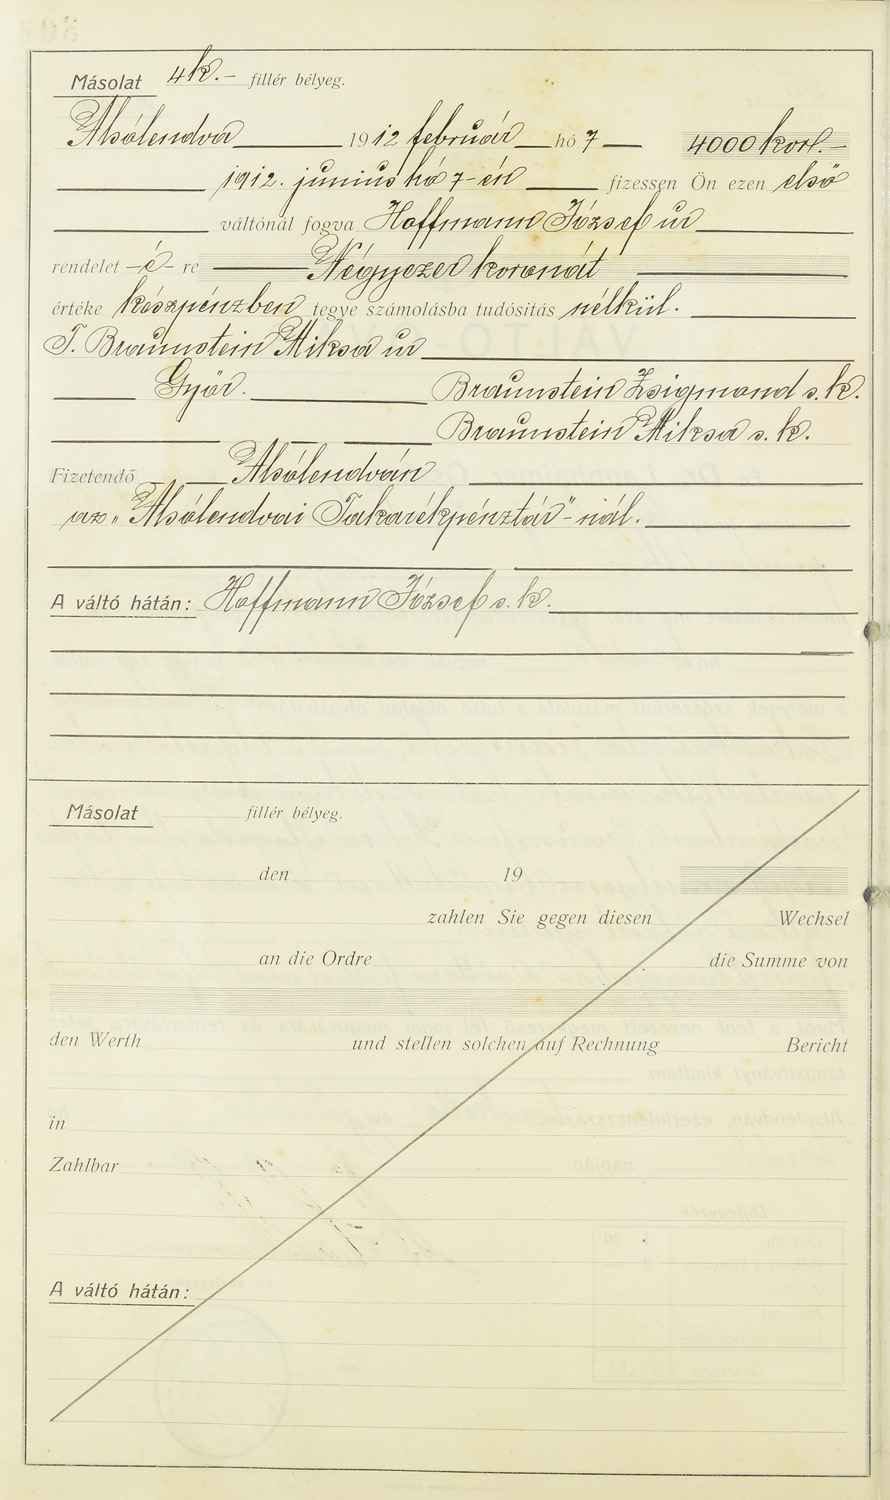 Másolat 4k.- fillér bélyeg.
Alsólendva 1912 február hó 7 4000 kor.-
1912. junius hó 7-én fizessen Ön ezen első
váltónál fogva Hoffmann József ur
rendelet -é- re Négyezer koronát
értéke készpénzben tegye számolásba tudósitás nélkül.
T. Braunstein Miksa ur
Győr. Braunstein Zsigmond s. k.
Braunstein Miksa s. k.
Fizetendő Alsólendván
az „Alsólendvai Takarékpénztár"-nál.
A váltó hátán: Hoffmann József s. k.
Másolat fillér bélyeg.
den 19
zahlen Sie gegen diesen Wechsel
an die Ordre die Summe von
den Werth und stellen solchen auf Rechnung Bericht
in
Zahlbar
A váltó hátán: